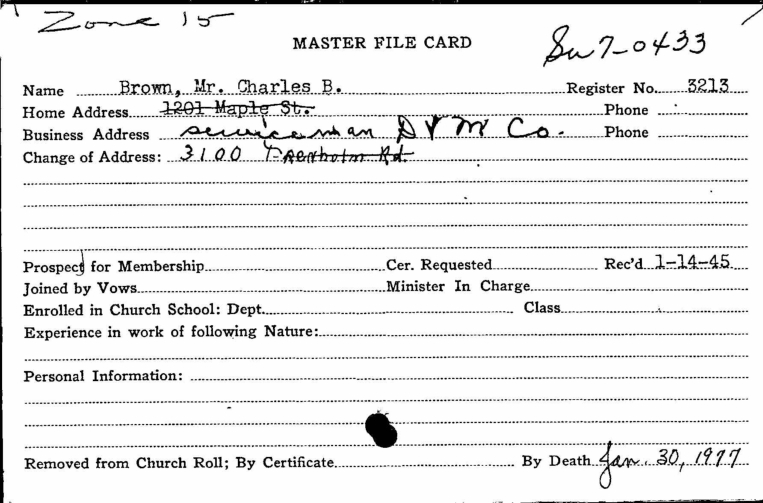 Zone 15
MASTER FILE CARD
Su 7-0433
Name Brown, Mr. Charles B. Register No. 3213
Home Address 1201 Maple St. Phone
Business Address serviceman D V M Co. Phone
Change of Address: 3100 Trenholm Rd.
Prospect for Membership Cer. Requested Rec'd 1-14-45
Joined by Vows Minister In Charge
Enrolled in Church School: Dept. Class
Experience in work of following Nature:
Personal Information:
Removed from Church Roll; By Certificate By Death Jan. 30, 1977